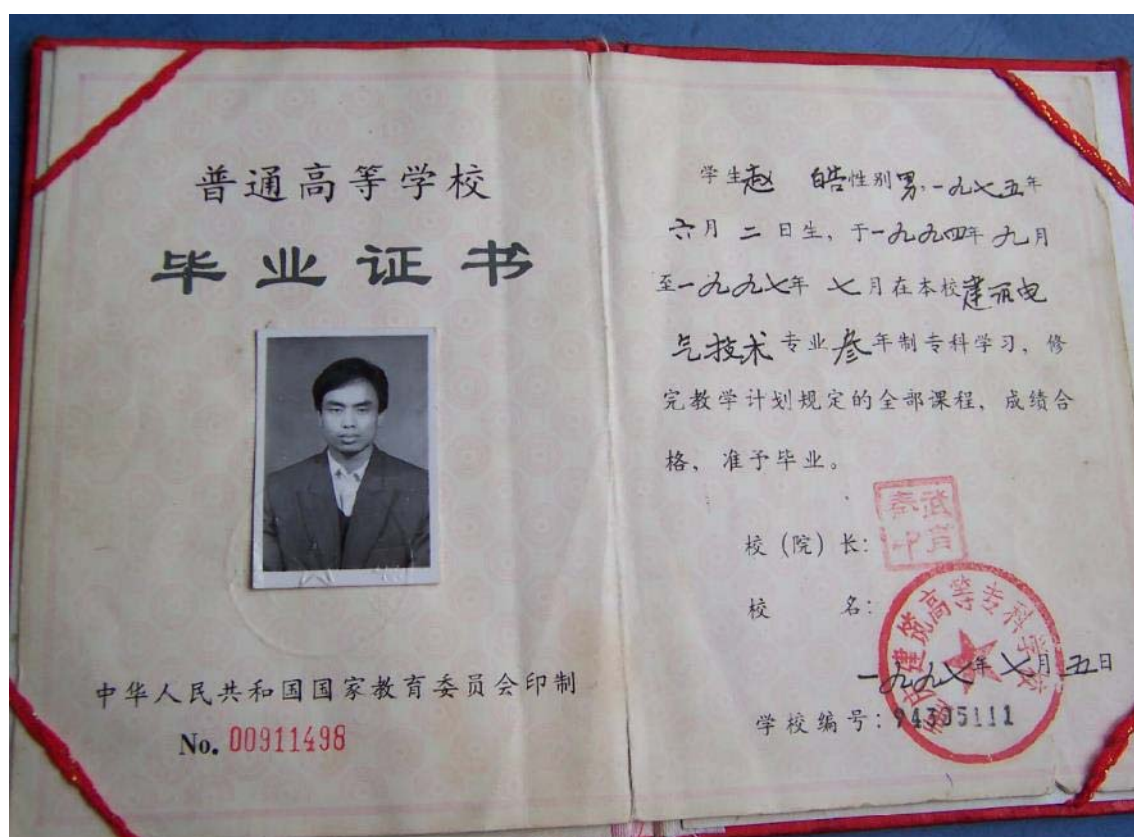 普通高等学校
毕业证书
中华人民共和国国家教育委员会印制
No. 00911498
学生赵 皓性别男,一九七五年
六月二日生, 于一九九四年九月
至一九九七年七月在本校建筑电
气技术专业叁年制专科学习, 修
完教学计划规定的全部课程, 成绩合
格, 准予毕业。
校(院)长:
校 名:
建筑高等专科学校
一九九七年七月五日
学校编号: 94305111